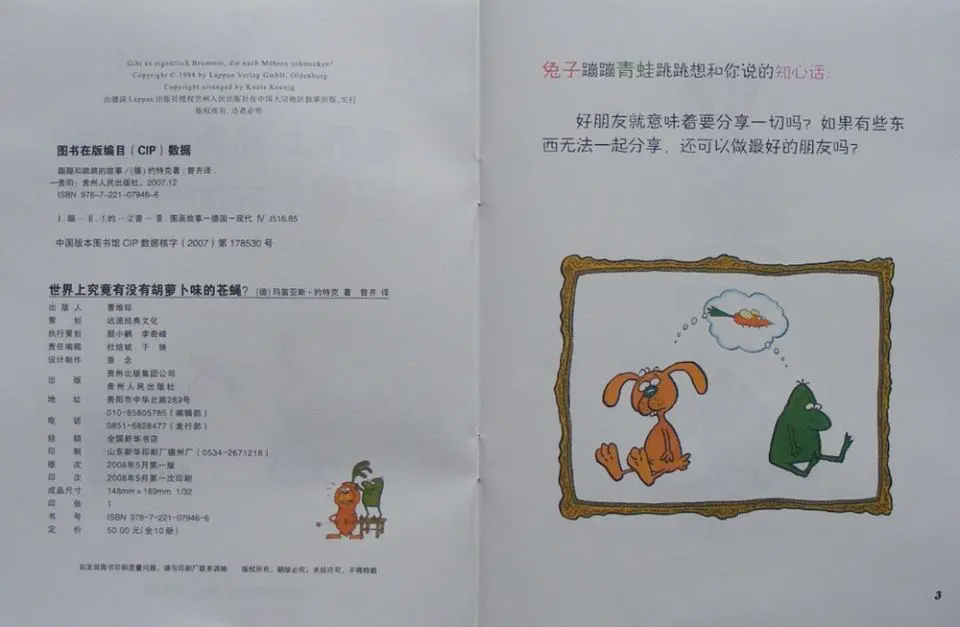 Gibt es eigentlich Brummer, die nach Möhren schmecken?
Copyright © 1994 by Lappan Verlag GmbH, Oldenburg
Copyright arranged by Knala Koenig
由德国Lappan出版社授权贵州人民出版社在中国大陆地区独家出版、发行
版权所有, 违者必究
图书在版编目(CIP)数据
蹦蹦和跳跳的故事/(德)约特克著; 曾齐译.
—贵阳: 贵州人民出版社, 2007.12
ISBN 978-7-221-07946-6
Ⅰ.蹦… Ⅱ.①约…②曾… Ⅲ 图画故事—德国—现代 Ⅳ.I516.85
中国版本图书馆CIP数据核字(2007)第178530号
世界上究竟有没有胡萝卜味的苍蝇? [德]玛笛亚斯·约特克 著 曾齐 译
出版人 曹维琼
策划 远流经典文化
执行策划 颜小鹂 李奇峰
责任编辑 杜培斌 于姝
设计制作 曾念
出版 贵州出版集团公司
贵州人民出版社
地址 贵阳市中华北路289号
电话 010-85805785(编辑部)
0851-6828477(发行部)
经销 全国新华书店
印制 山东新华印刷厂德州厂(0534-2671218)
版次 2008年5月第一版
印次 2008年5月第一次印刷
成品尺寸 148mm×189mm 1/32
印张 1
书号 ISBN 978-7-221-07946-6
定价 50.00元(全10册)
如发现图书印刷质量问题, 请与印刷厂联系调换 版权所有, 翻版必究; 未经许可, 不得转载
兔子蹦蹦青蛙跳跳想和你说的知心话:
好朋友就意味着要分享一切吗? 如果有些东
西无法一起分享, 还可以做最好的朋友吗?
3